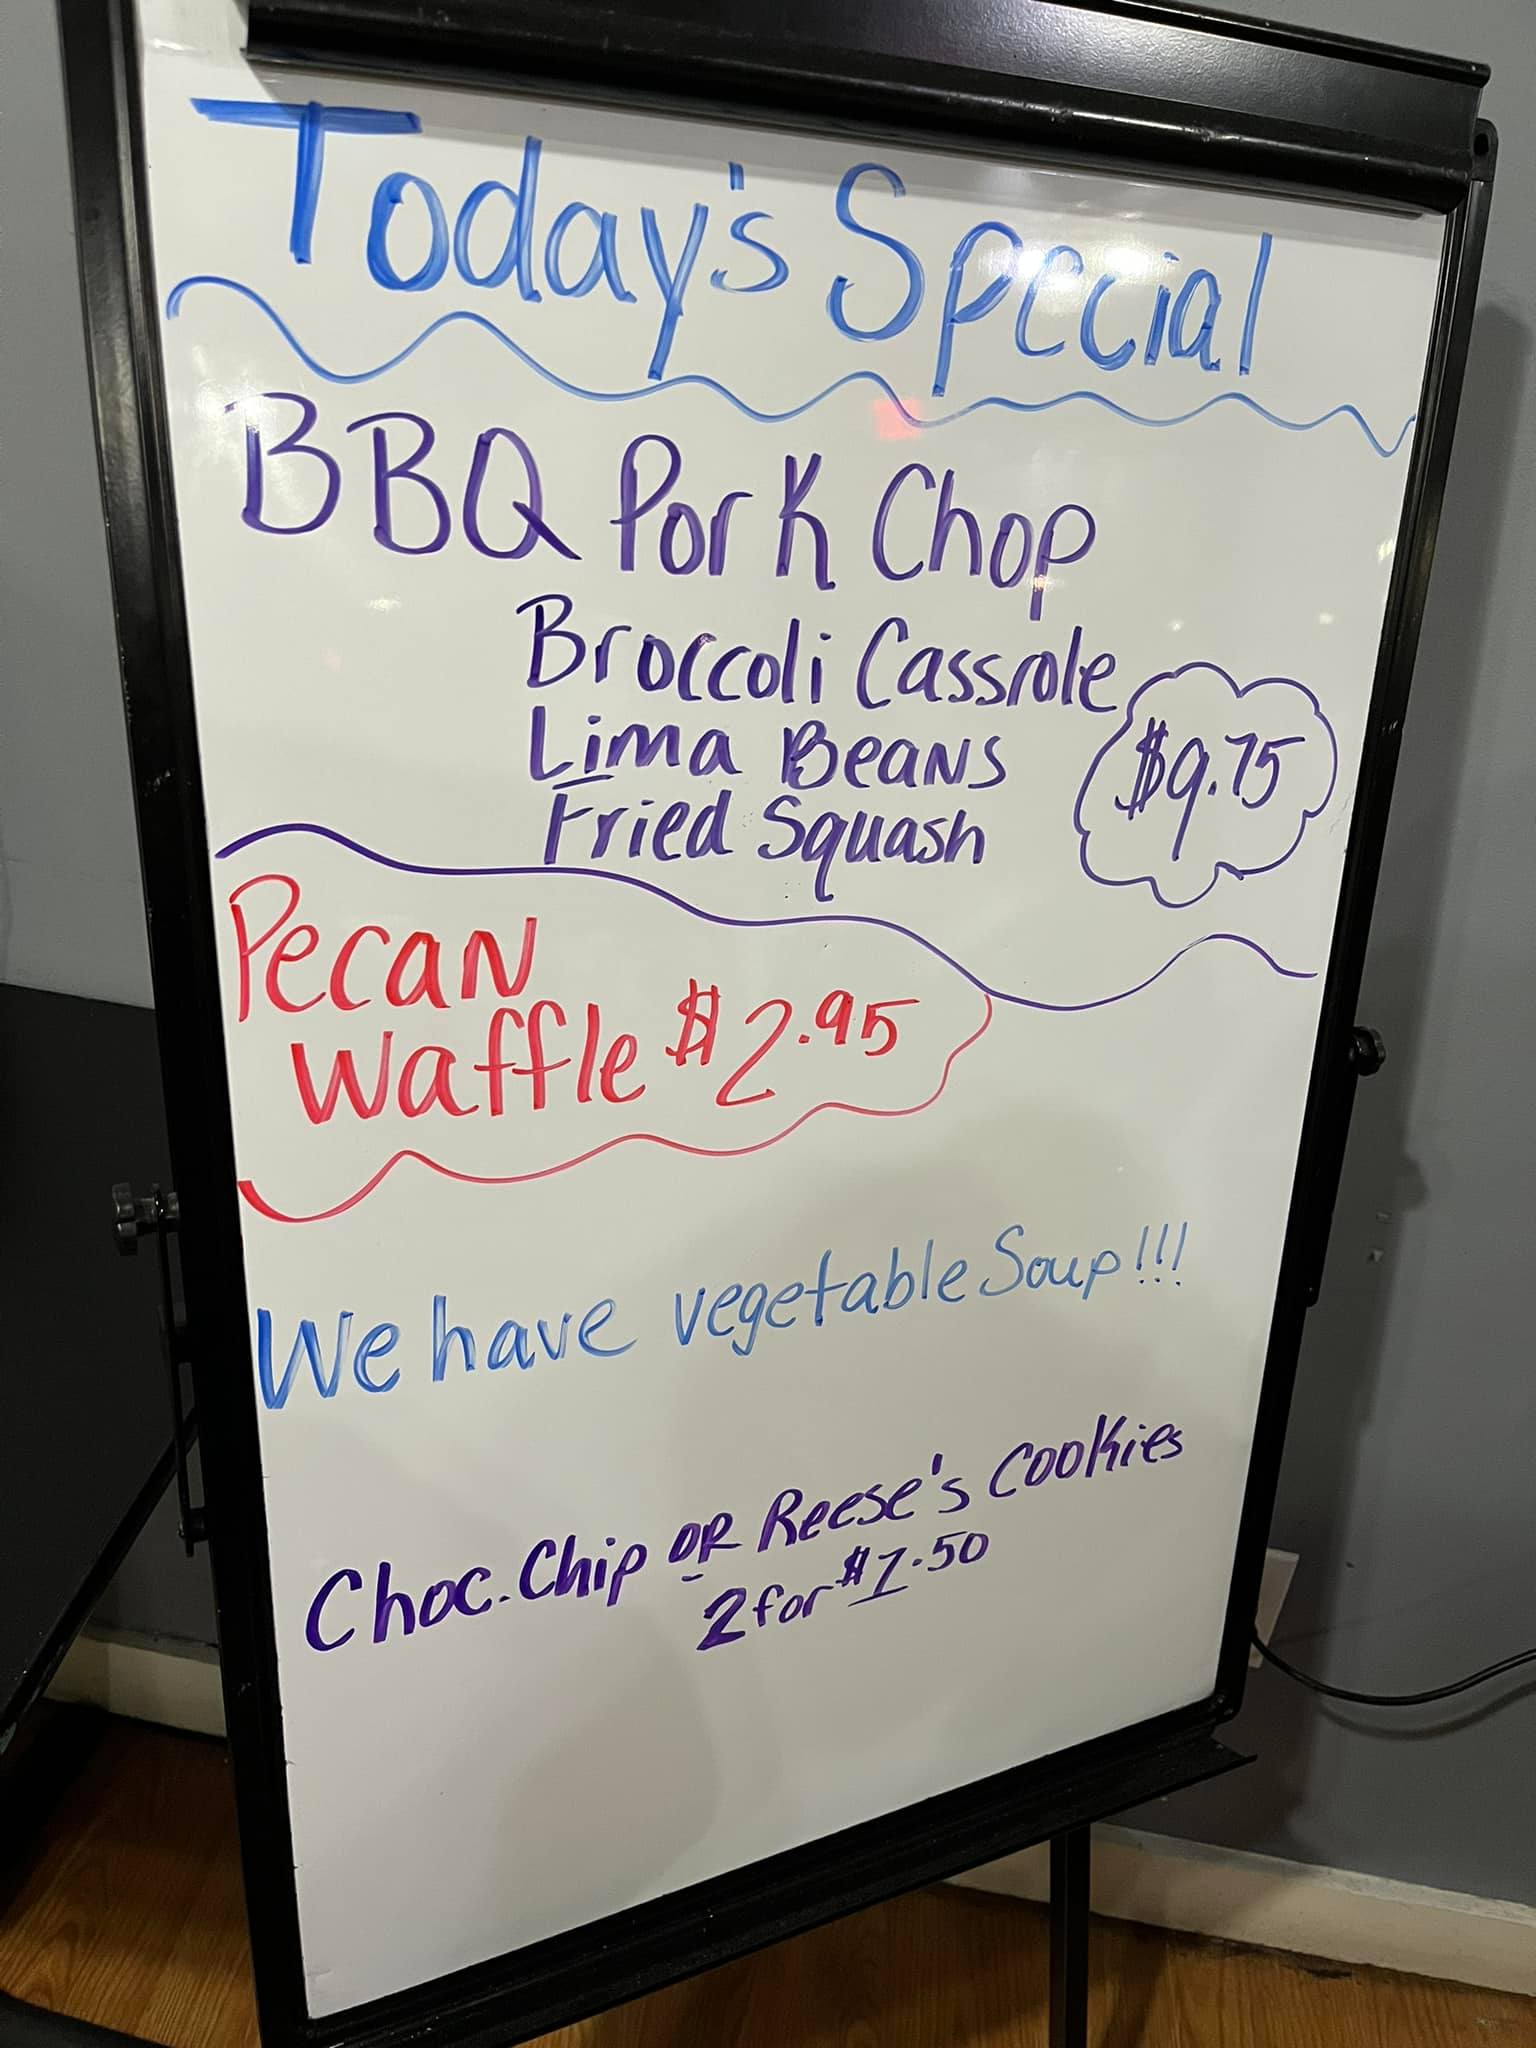 Today's Special
BBQ Pork Chop
Broccoli Cassrole
Lima Beans
$9.75
Fried Squash
Pecan
Waffle $2.95
We have vegetable Soup!!!
Choc. Chip OR Reese's Cookies
2 for $1.50